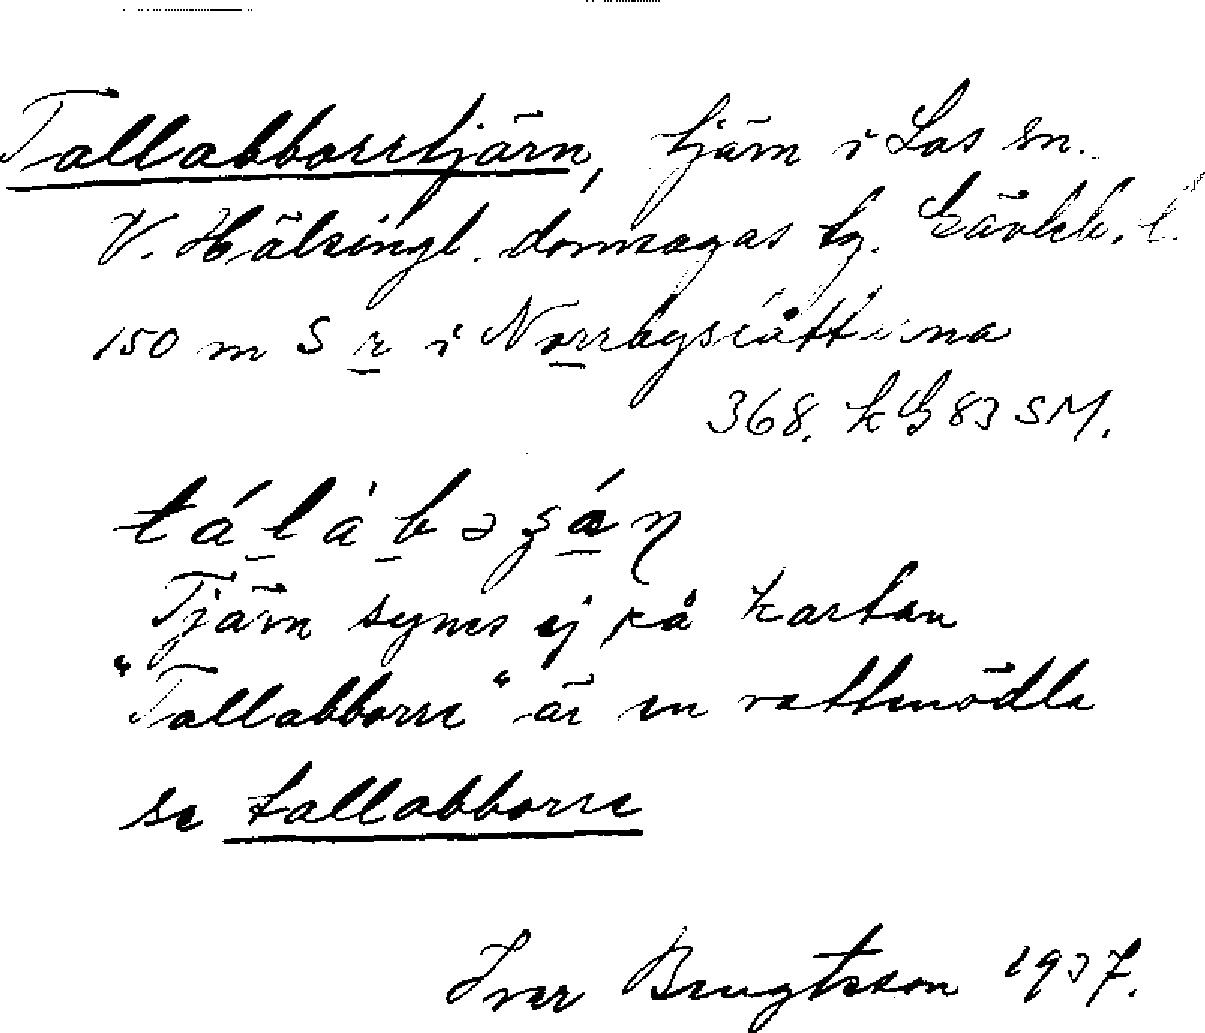 Tallabborrtjärn, tjärn i Los sn.
V. Hälsingl. domsagas tg. Gävleb. l.
150 m S r i Norrbyslåtterna
368. k G 83 SM.
Tjärn synes ej på kartan
"Tallabborre" är en vattenödla
se tallabborre
Ivar Bengtsson 1937.